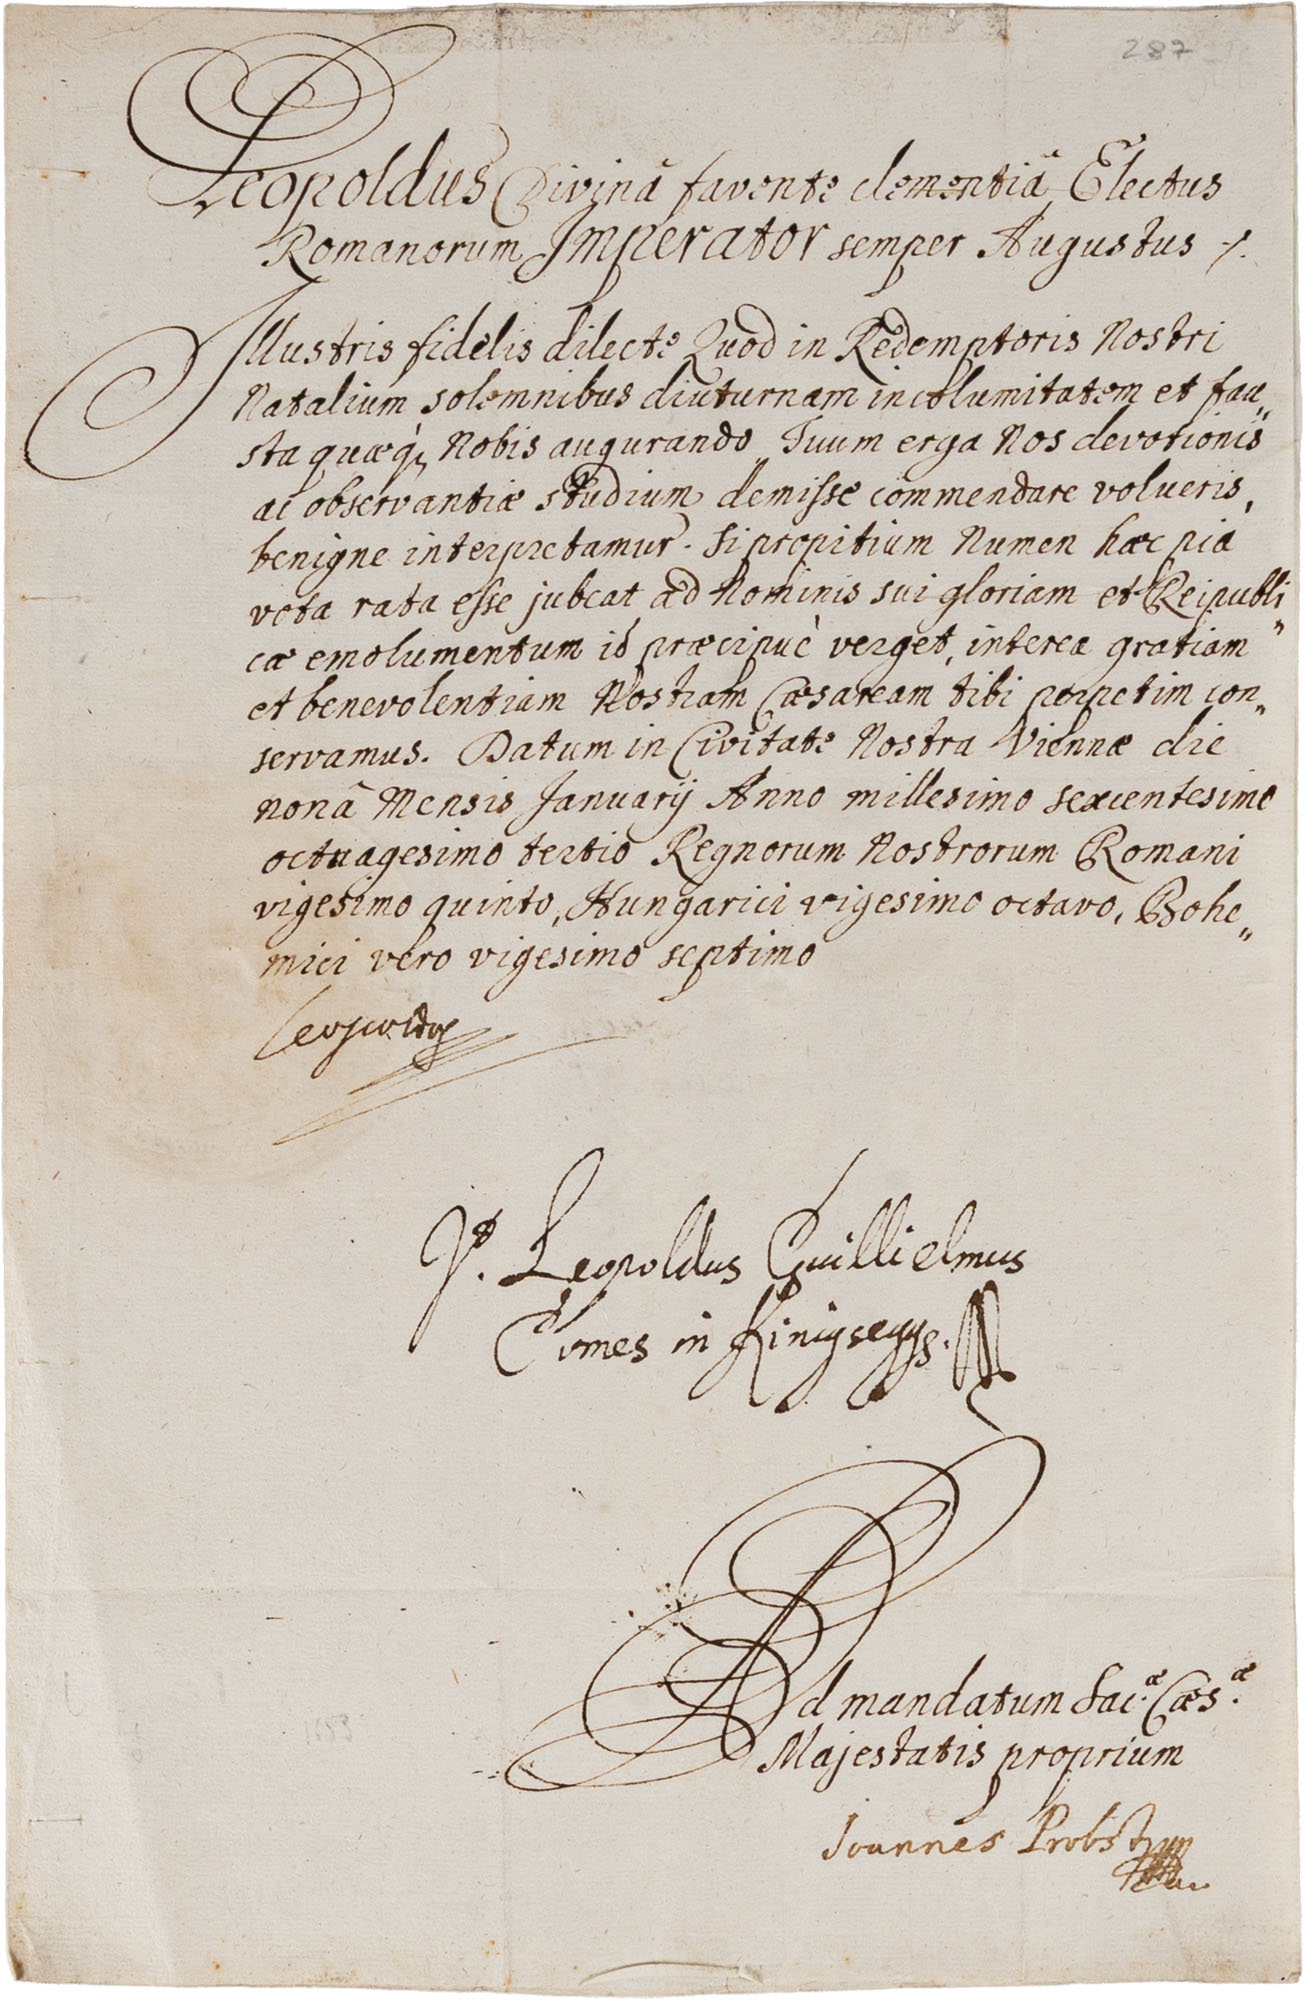 287
Leopoldus Divinâ favente clementiâ Electus
Romanorum Imperator semper Augustus
Illustris fidelis dilecte Quod in Redemptoris Nostri
Natalium solemnibus diuturnam incolumitatem et fau„
sta quæq; Nobis augurando Tuum erga Nos devotionis
ac observantiæ studium demisse commendare volueris,
benigne interpretamur. Si propitium Numen hæc pia
vota rata esse jubeat ad Nominis sui gloriam et Reipubli„
cæ emolumentum id præcipuè verget, interea gratiam
et benevolentiam Nostram Cæsaream tibi perpetim con„
servamus. Datum in Civitate Nostra Viennæ die
nonâ Mensis Januarij Anno millesimo sexcentesimo
octuagesimo tertio Regnorum Nostrorum Romani
vigesimo quinto, Hungarici vigesimo octavo, Bohe„
mici vero vigesimo septimo
Leopoldus
Vt. Leopoldus Guillielmus
Comes in Kinigsegg.
Ad mandatum Sac.æ Cæs.æ
Majestatis proprium
Joannes Probst